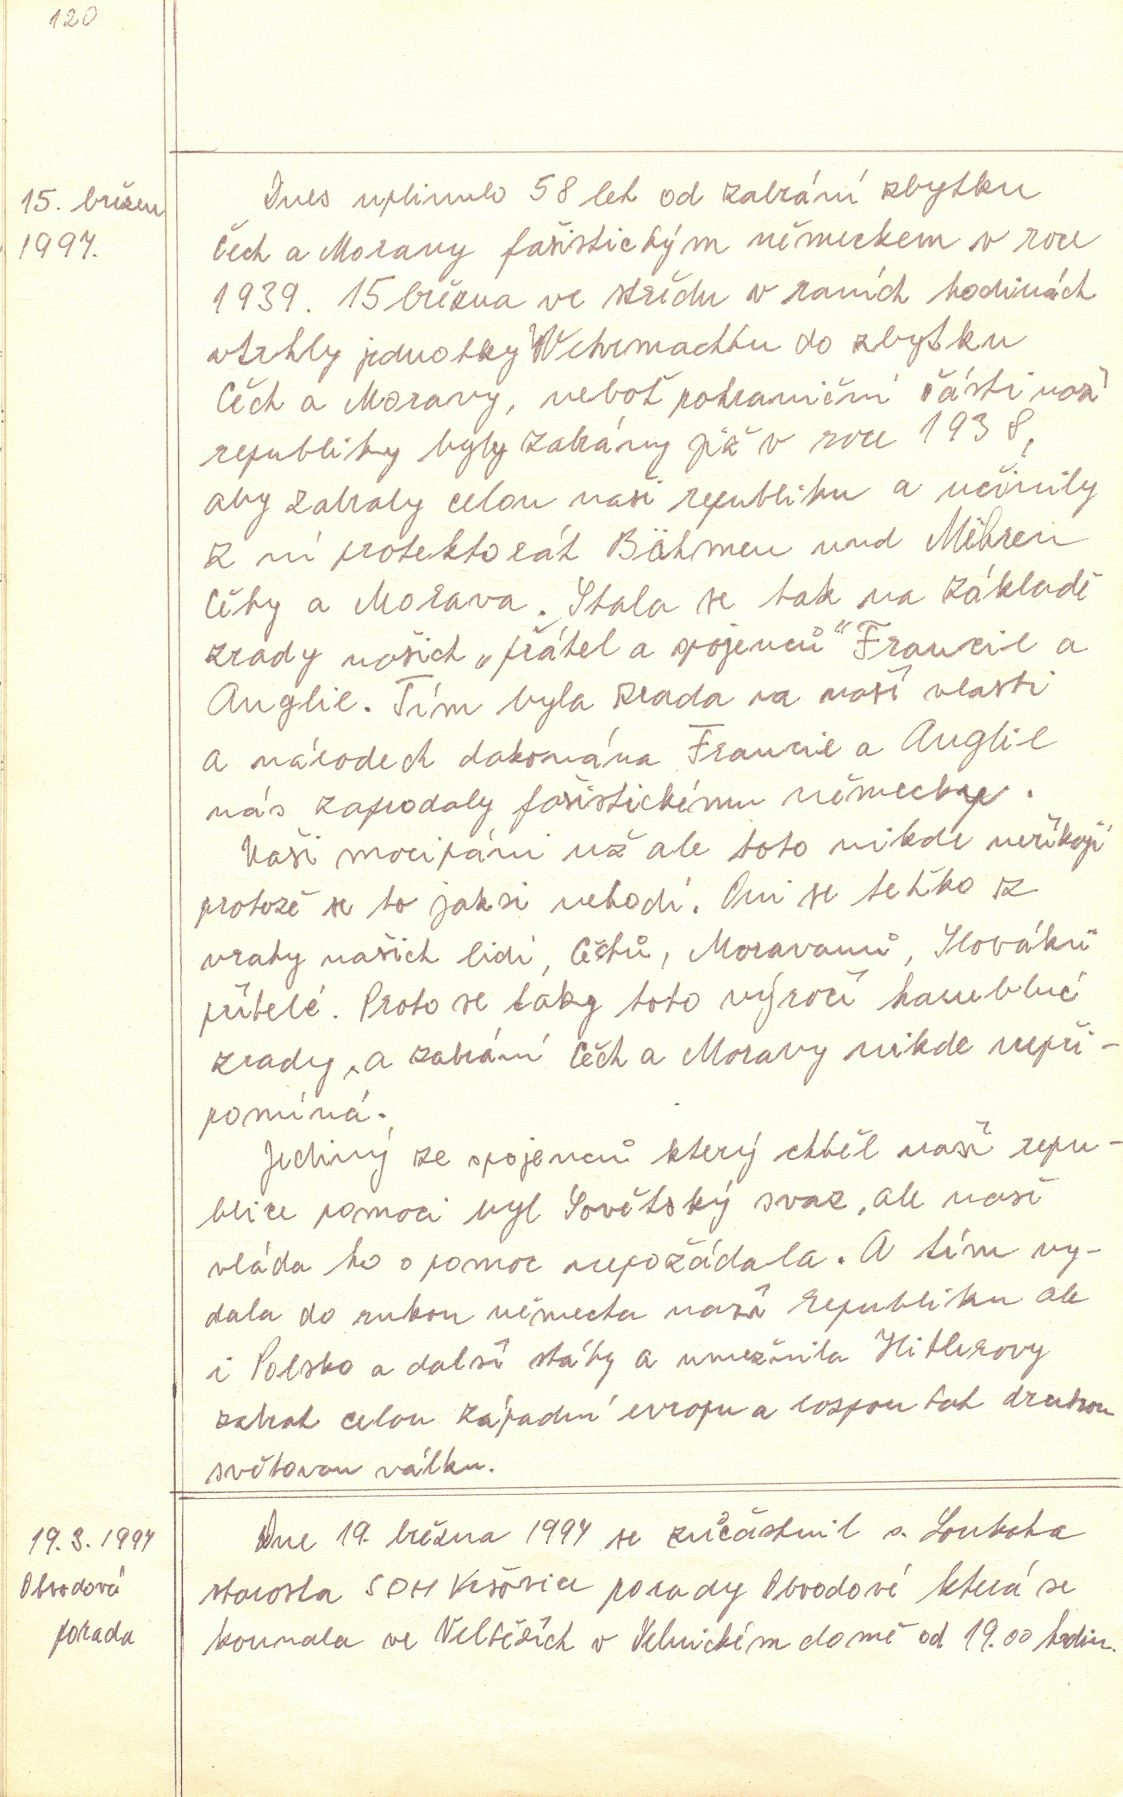 120
15. březen
1997.
Dnes uplinulo 58 let od zabrání zbytku
Čech a Moravy fašistickým německem v roce
1939. 15 března ve středu v raních hodinách
vtrhly jednotky Wehrmachtu do zbytku
Čech a Moravy, neboť pohraniční části naší
republiky byly zabrány již v roce 1938,
aby zabraly celou naši republiku a učinily
z ní protektorát Böhmen und Mähren
Čéhy a Morava. Stala se tak na základě
zrady našich „přátel a spojenců“ Francie a
Anglie. Tím byla zrada na naší vlasti
a národech dokonána Francie a Anglie
nás zaprodaly fašistickému německu.
Naši mocipáni už ale toto nikde neříkají
protože se to jaksi nehodí. Oni se teťko z
vrahy našich lidí, Čéhů, Moravanů, Slováků
přítelé. Proto se taky toto výročí hanebné
zrady, a zabrání Čech a Moravy nikde nepři-
pomíná.
Jediný ze spojenců který chtěl naší repu-
blice pomoci byl Sovětský svaz, ale naše
vláda ho o pomoc nepožádala. A tím vy-
dala do rukou německa naší republiku ale
i Polsko a další státy a umožnila Hitlerovy
zabrat celou západní evropu a rozpoutat druhou
světovou válku.
19. 3. 1997
Obvodová
porada
Dne 19. března 1997 se zůčástnil s. Loukota
starosta SDH Kršovice porady Obvodové která se
kounala ve Veltěžích v Dělnickém domě od 19.00 hodin.